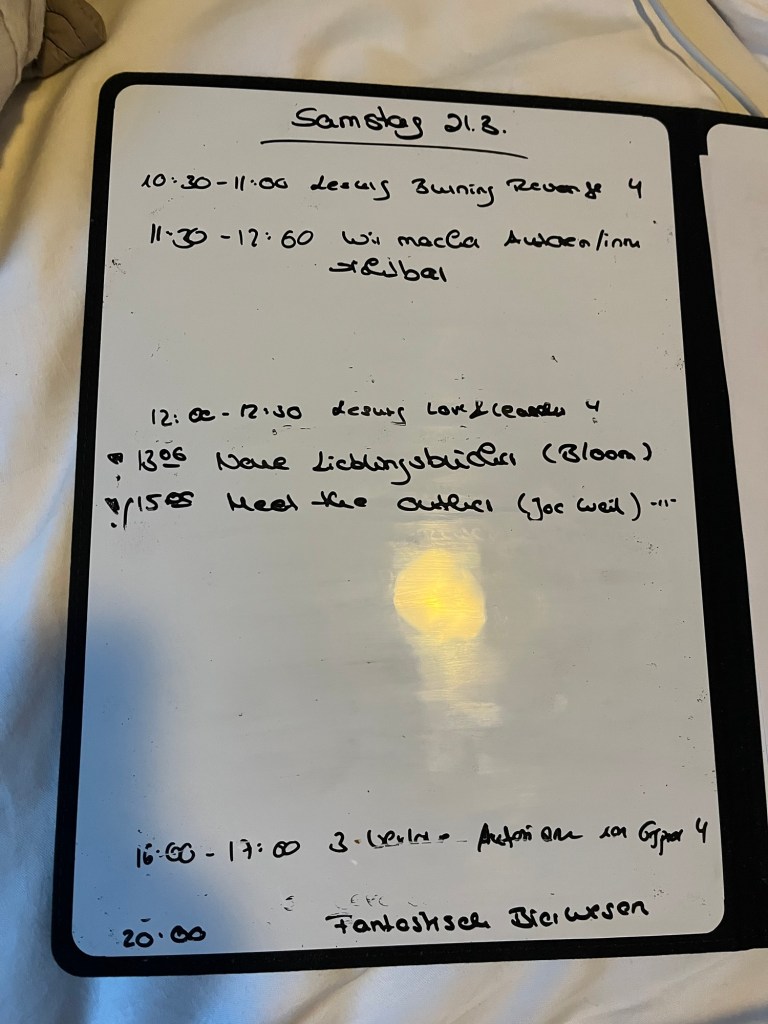 Samstag 21.3.
10:30-11:00 Lesung Burning Revenge 4
11:30-12:00 Wir machen Autoren/innen
sichtbar
12:00-12:30 Lesung Love & 4
1300 Neue Lieblingsbücher (Bloom)
1500 Meet the authors (Joe Weil) -"-
16:00-17:00 3. 4
20:00 Fantastisch